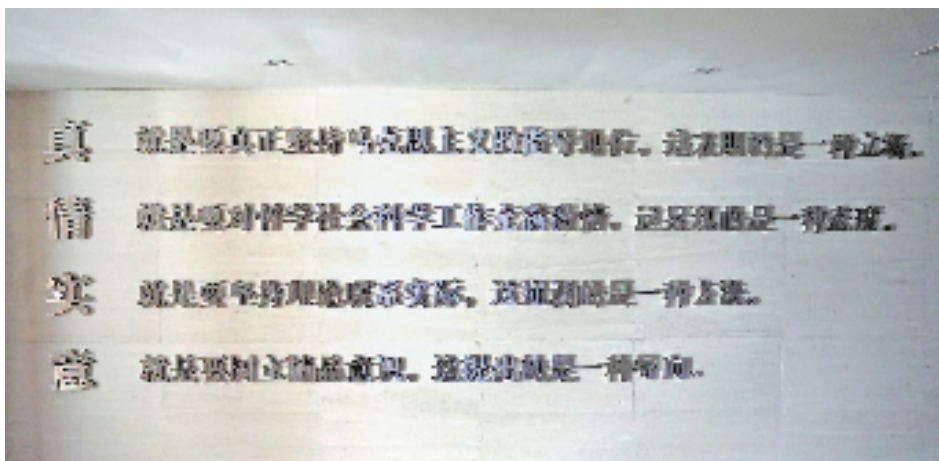 真 就是要真正坚持马克思主义的指导地位。这表明的是一种立场。
情 就是要对哲学社会科学工作充满激情。这展现的是一种态度。
实 就是要坚持理论联系实际。这证明的是一种方法。
意 就是要树立精品意识。这提出的是一种导向。